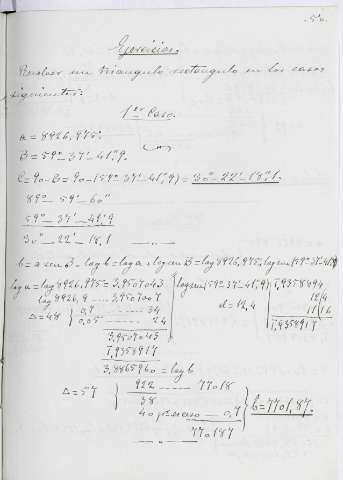 50.
Ejercicios.
Resolver un triangulo rectangulo en los casos
siguientes:
1er Caso.
a = 8926,975.
B = 59º_37'_41",9.
C = 90-B = 90-(59º_37'_41",9) = 30º_22'_18",1.
89º_59'_60"
59º_37'_41",9
30º_22'_18,1
b = a sen B_ log b = log a + log sen B = log 8926,975 + log sen (59º_37'_41",9)
log a = log 8926,975 = 3,9507043
log 8926,9 .... 3,9507007
Δ=48 { 0,7 ........ 34
0,05 ...... 24
3,9507043
1,9358917
3,8865960 = log b
log sen (59º_37'_41",9) 1,9378494
d = 12,4
1,9358917
Δ=57 } 922 ...... 77018
38
0,7
770187
b=7701,87.